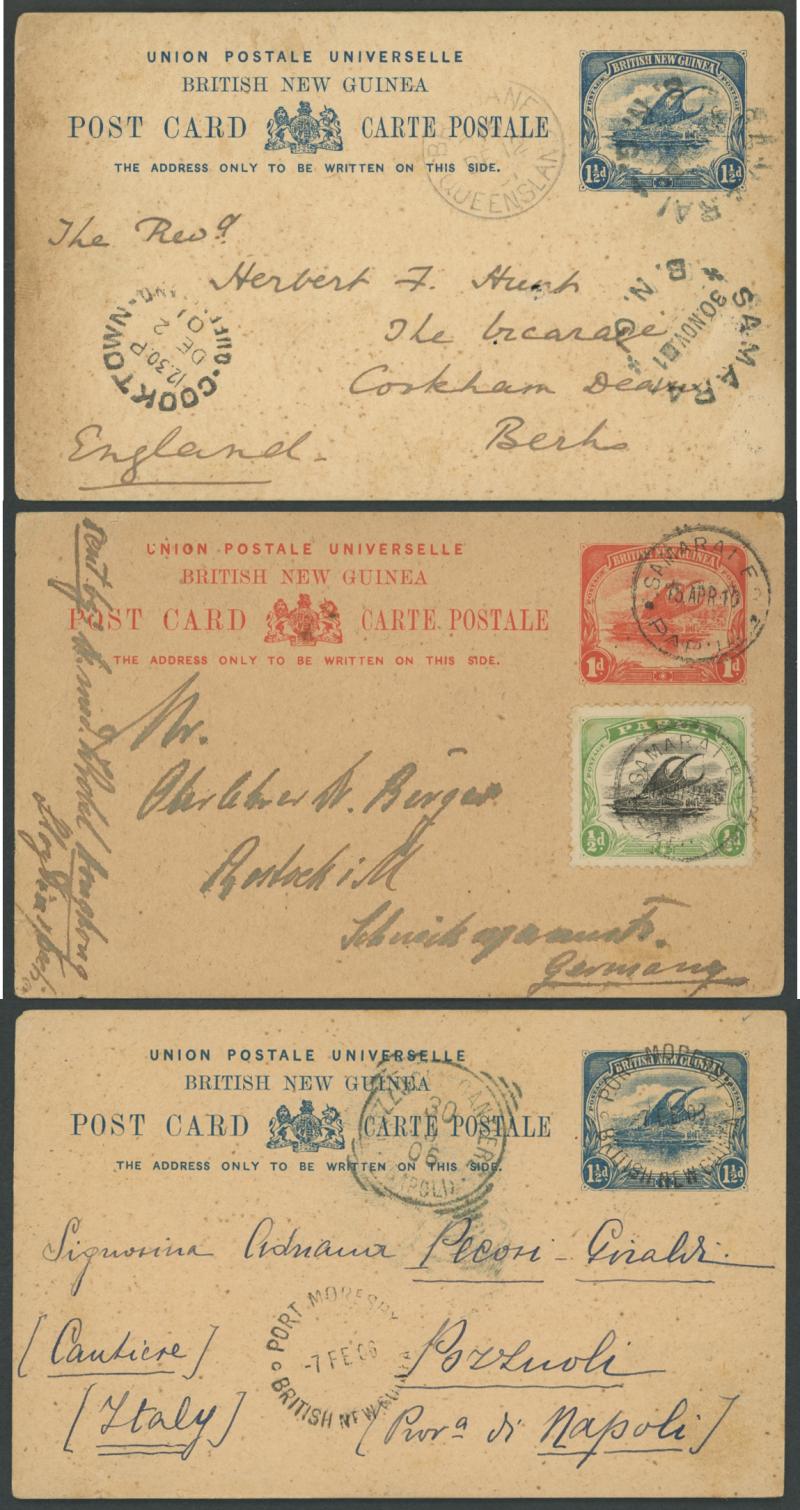 UNION POSTALE UNIVERSELLE
BRITISH NEW GUINEA
POST CARD CARTE POSTALE
THE ADDRESS ONLY TO BE WRITTEN ON THIS SIDE.
BRITISH NEW GUINEA
POSTAGE POSTAGE
1½d 1½d
QUEENSLAN
SAMARAI
B.N.G.
30 NOV 01
COOKTOWN
12 30 P
DE 2
01
The Revd
Herbert F. Hunt
The Vicarage
Cookham Dean
Berks
England
UNION POSTALE UNIVERSELLE
BRITISH NEW GUINEA
POST CARD CARTE POSTALE
THE ADDRESS ONLY TO BE WRITTEN ON THIS SIDE.
BRITISH NEW GUINEA
POSTAGE POSTAGE
1d 1d
SAMARAI
APR 10
PAPUA
PAPUA
POSTAGE POSTAGE
½d. ½d.
SAMARAI
sent by
Mr.
Oberlehrer Berger
Rostock i M
Germany
UNION POSTALE UNIVERSELLE
BRITISH NEW GUINEA
POST CARD CARTE POSTALE
THE ADDRESS ONLY TO BE WRITTEN ON THIS SIDE.
BRITISH NEW GUINEA
1½d 1½d
PORT MORESBY
BRITISH NEW GUINEA
30
06
Signorina Adriana Pecori - Giraldi
[Cantiere] Pozzuoli
[Italy] [Prova di Napoli]
PORT MORESBY
-7 FE 06
BRITISH NEW GUINEA